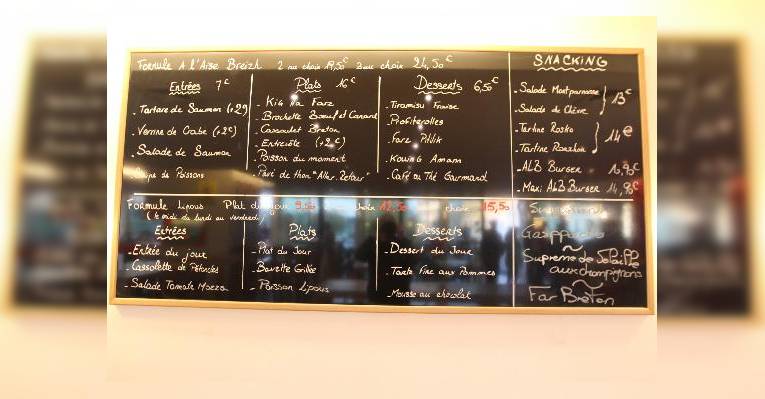 Formule A l'Aise Breizh 2 au choix 19,50€ 3 au choix 24,50€
Entrées 7€
- Tartare de Saumon (+2€)
- Verrine de Crabe (+2€)
- Salade de Saumon
- Soupe de Poissons
Plats 16€
- Kig Ha Farz
- Brochette Boeuf et Canard
- Cassoulet Breton
- Entrecôte (+2€)
- Poisson du moment
- Pavé de thon "Aller-Retour"
Desserts 6,50€
- Tiramisu Fraise
- Profiterolles
- Farz Pitilik
- Kouing Amann
- Café ou Thé Gourmand
SNACKING
- Salade Montparnasse
- Salade de Chèvre
13€
- Tartine Rosko
- Tartine Roazhon
14€
- ALB Burger 10,90€
- Maxi ALB Burger 14,90€
Formule Lipous Plat du jour 9.50 choix 12,50 choix 15,50
(le midi du lundi au vendredi)
Entrées
- Entrée du jour
- Cassolette de Pétoncles
- Salade Tomate Mozza
Plats
- Plat du Jour
- Bavette Grillée
- Poisson Lipous
Desserts
- Dessert du Jour
- Tarte fine aux Pommes
- Mousse au chocolat
Gaspacho
Supreme de Volaille
aux champignons
Far Breton